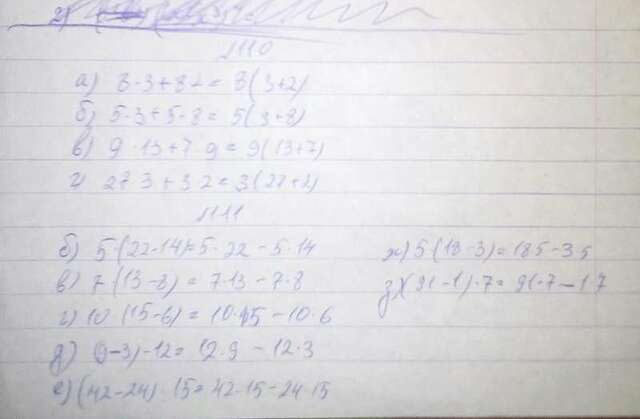 №110
а) 8·3+8·2= 8(3+2)
б) 5·3+5·8= 5(3+8)
в) 9·13+7·9=9(13+7)
г) 27·3+3·2=3(27+2)
№111
б) 5·(22-14)=5·22-5·14
в) 7·(13-8)= 7·13-7·8
г) 10·(15-6)= 10·15-10·6
д) (9-3)·12= 12·9-12·3
е) (42-24)·15=42·15-24·15
ж) 5(18-3)=18·5-3·5
з) (91-1)·7=91·7-1·7